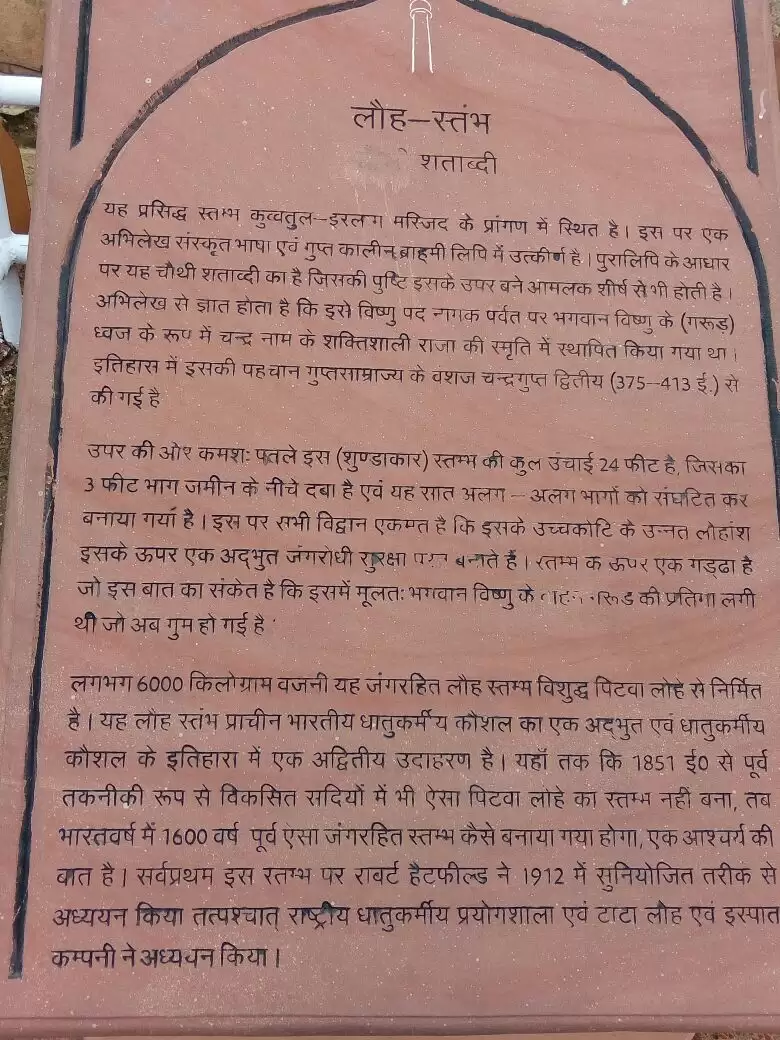 लौह–स्तंभ
शताब्दी
यह प्रसिद्ध स्तम्भ कुव्वतुल–इस्लाम मस्जिद के प्रांगण में स्थित है। इस पर एक
अभिलेख संस्कृत भाषा एवं गुप्त कालीन ब्राहमी लिपि में उत्कीर्ण है। पुरालिपि के आधार
पर यह चौथी शताब्दी का है जिसकी पुष्टि इसके उपर बने आमलक शीर्ष से भी होती है।
अभिलेख से ज्ञात होता है कि इसे विष्णु पद नामक पर्वत पर भगवान विष्णु के (गरूड़)
ध्वज के रूप में चन्द्र नाम के शक्तिशाली राजा की स्मृति में स्थापित किया गया था।
इतिहास में इसकी पहचान गुप्तसाम्राज्य के वंशज चन्द्रगुप्त द्वितीय (375–413 ई.) से
की गई है
उपर की ओर कमशः पतले इस (शुण्डाकार) स्तम्भ की कुल उंचाई 24 फीट है, जिसका
3 फीट भाग जमीन के नीचे दबा है एवं यह सात अलग – अलग भागों को संघटित कर
बनाया गया है। इस पर सभी विद्वान एकमत है कि इसके उच्चकोटि के उन्नत लोहांश
इसके ऊपर एक अद्भुत जंगरोधी सुरक्षा बनाते हैं। स्तम्भ के ऊपर एक गड्ढा है
जो इस बात का संकेत है कि इसमें मूलतः भगवान विष्णु के की प्रतिमा लगी
थी जो अब गुम हो गई है
लगभग 6000 किलोग्राम वजनी यह जंगरहित लौह स्तम्भ विशुद्ध पिटवा लोहे से निर्मित
है। यह लौह स्तंभ प्राचीन भारतीय धातुकर्मीय कौशल का एक अद्भुत एवं धातुकर्मीय
कौशल के इतिहास में एक अद्वितीय उदाहरण है। यहाँ तक कि 1851 ई0 से पूर्व
तकनीकी रूप से विकसित सदियों में भी ऐसा पिटवा लोहे का स्तम्भ नहीं बना, तब
भारतवर्ष में 1600 वर्ष पूर्व एसा जंगरहित स्तम्भ कैसे बनाया गया होगा, एक आश्चर्य की
बात है। सर्वप्रथम इस स्तम्भ पर राबर्ट हैटफील्ड ने 1912 में सुनियोजित तरीक से
अध्ययन किया तत्पश्चात् राष्ट्रीय धातुकर्मीय प्रयोगशाला एवं टाटा लौह एवं इस्पात
कम्पनी ने अध्ययन किया।